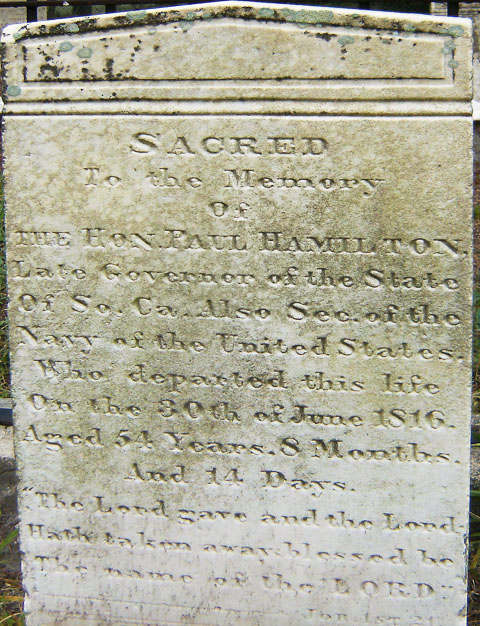 SACRED
To the Memory
Of
THE HON. PAUL HAMILTON.
Late Governor of the State
Of So. Ca. Also Sec. of the
Navy of the United States.
Who departed this life
On the 30th of June 1816.
Aged 54 Years. 8 Months.
And 14 Days.
"The Lord gave and the Lord
Hath taken away: blessed be
The name of the LORD"
JOB. 1ST 21